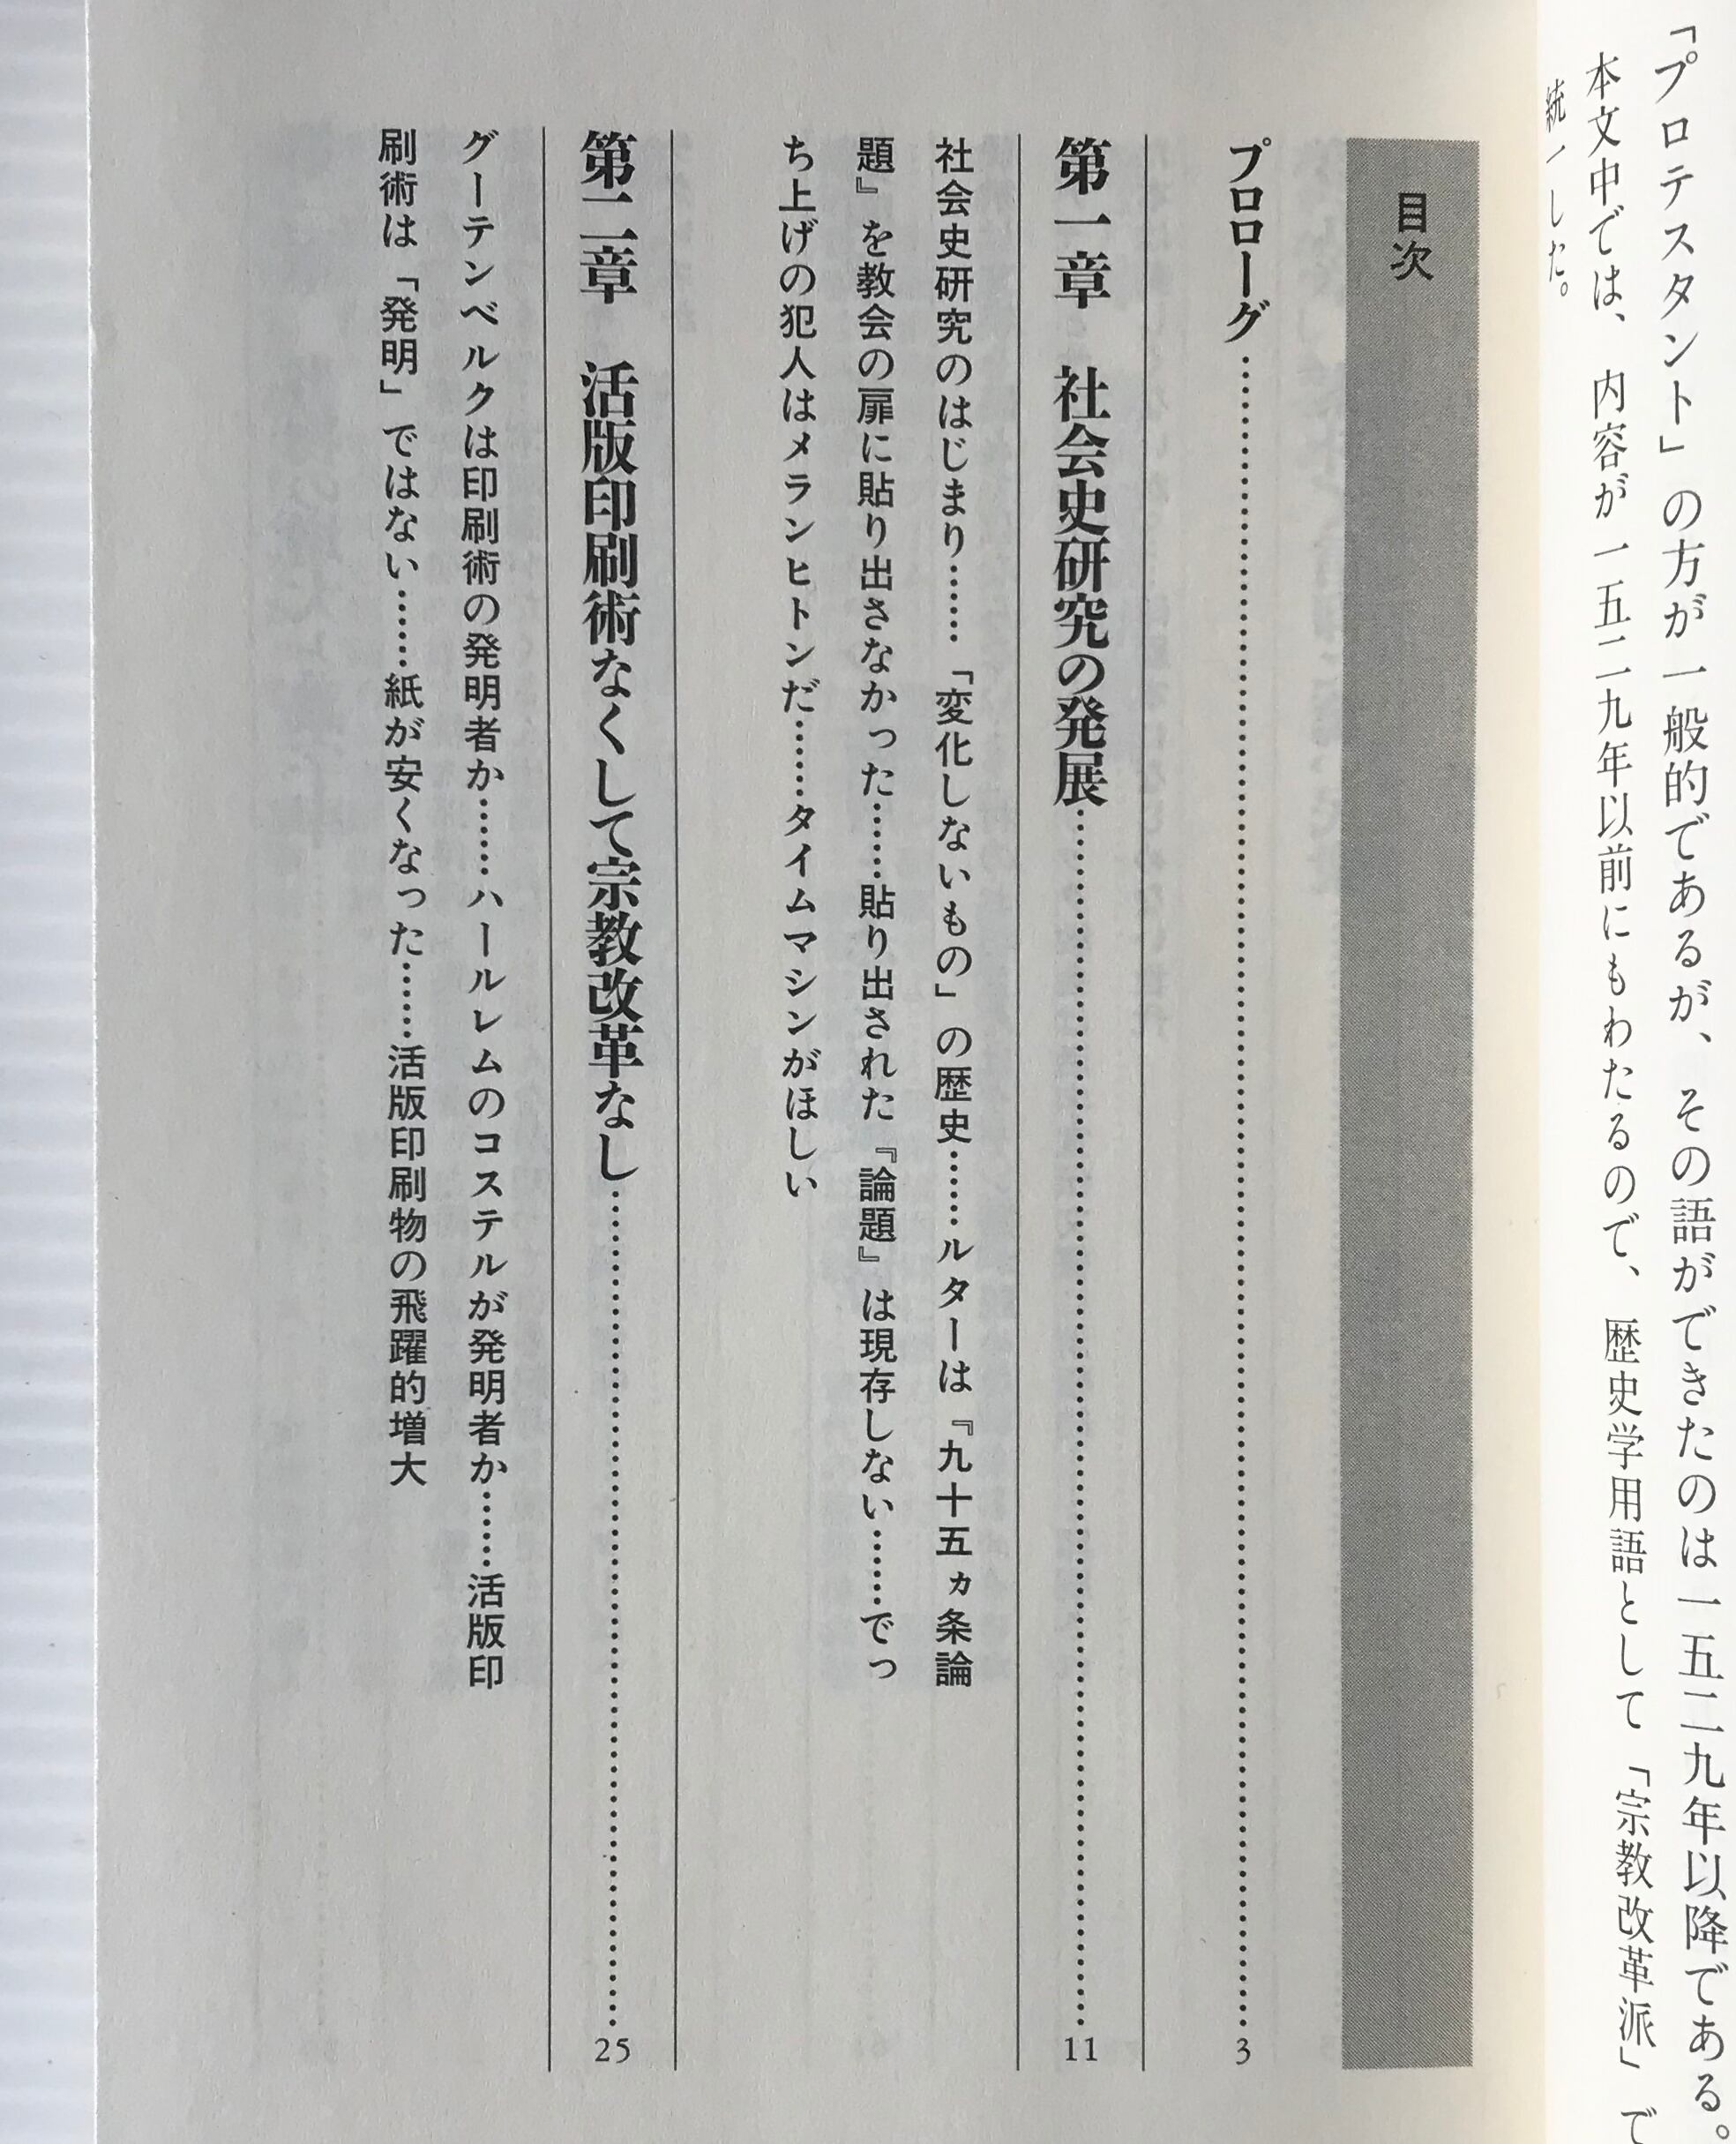 「プロテスタント」の方が一般的であるが、その語ができたのは一五二九年以降である。
本文中では、内容が一五二九年以前にもわたるので、歴史学用語として「宗教改革派」で
統一した。
目次
プロローグ……………………3
第一章　社会史研究の発展……………………11
社会史研究のはじまり……「変化しないもの」の歴史……ルターは『九十五ヵ条論
題』を教会の扉に貼り出さなかった……貼り出された『論題』は現存しない……でっ
ち上げの犯人はメランヒトンだ……タイムマシンがほしい
第二章　活版印刷術なくして宗教改革なし……………………25
グーテンベルクは印刷術の発明者か……ハールレムのコステルが発明者か……活版印
刷術は「発明」ではない……紙が安くなった……活版印刷物の飛躍的増大